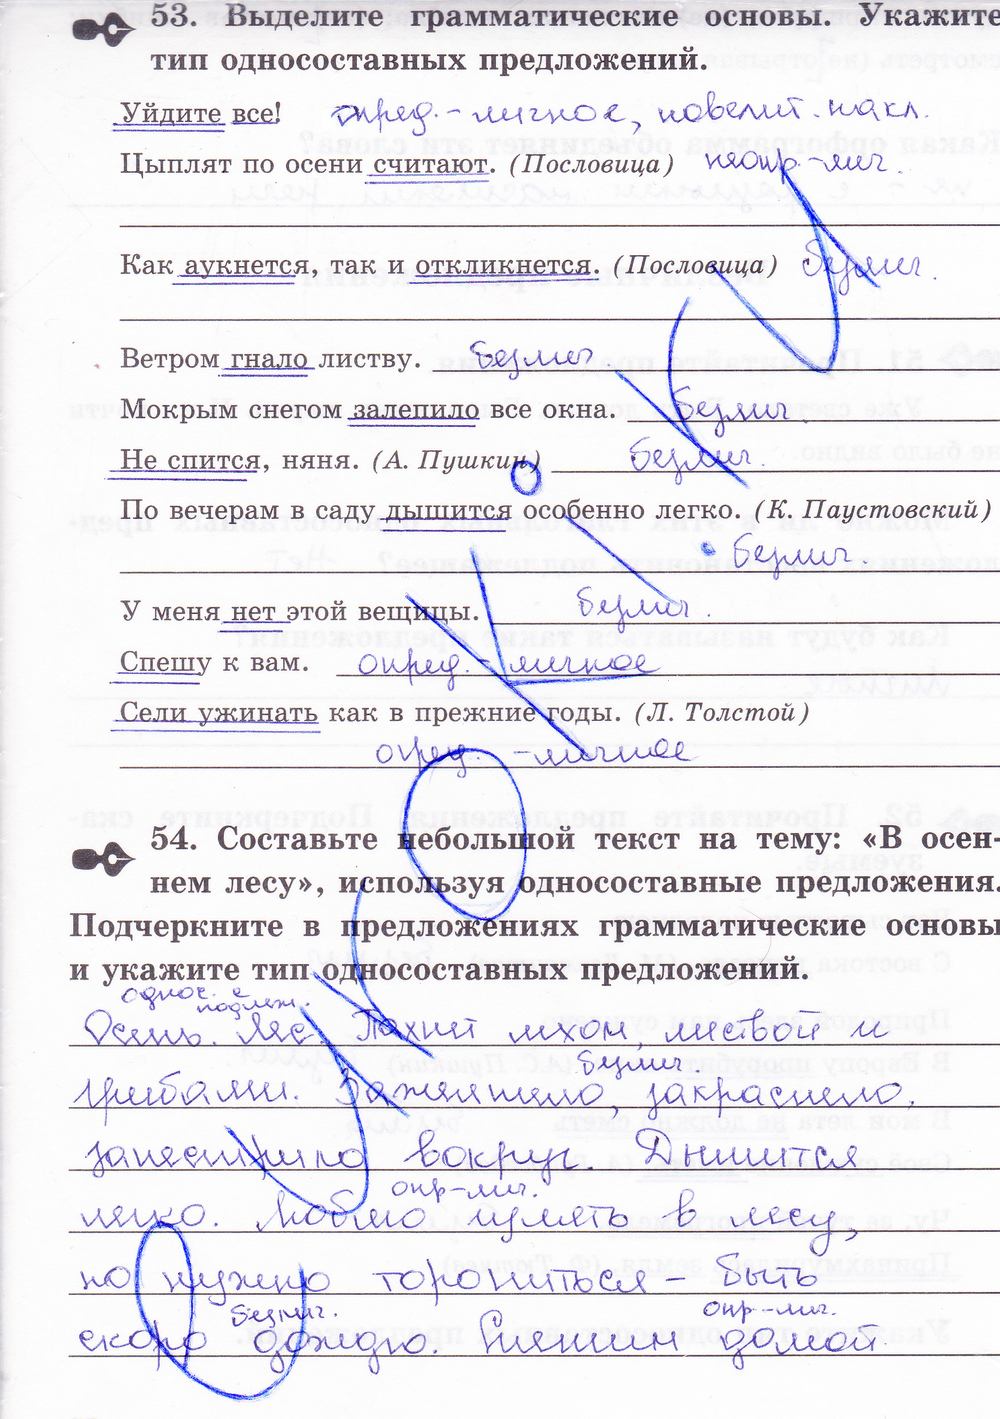 53. Выделите грамматические основы. Укажите
тип односоставных предложений.
Уйдите все! опред.-личное, повелит. накл.
Цыплят по осени считают. (Пословица) неопр-лич.
Как аукнется, так и откликнется. (Пословица) безлич.
Ветром гнало листву. безлич
Мокрым снегом залепило все окна. безлич.
Не спится, няня. (А. Пушкин) безлич.
По вечерам в саду дышится особенно легко. (К. Паустовский)
безлич.
У меня нет этой вещицы. безлич.
Спешу к вам. опред.-личное
Сели ужинать как в прежние годы. (Л. Толстой)
опред.-личное
54. Составьте небольшой текст на тему: «В осен-
нем лесу», используя односоставные предложения.
Подчеркните в предложениях грамматические основы
и укажите тип односоставных предложений.
однос. с
подлеж.
Осень. Лес. Пахнет мхом, листвой и
безлич.
грибами. Зажелтило, закраснело,
запестрило вокруг. Дышится
опр-лич.
легко. Люблю гулять в лесу,
но нужно торопиться – быть
безлич. опр-лич.
скоро дождю. Спешим домой.